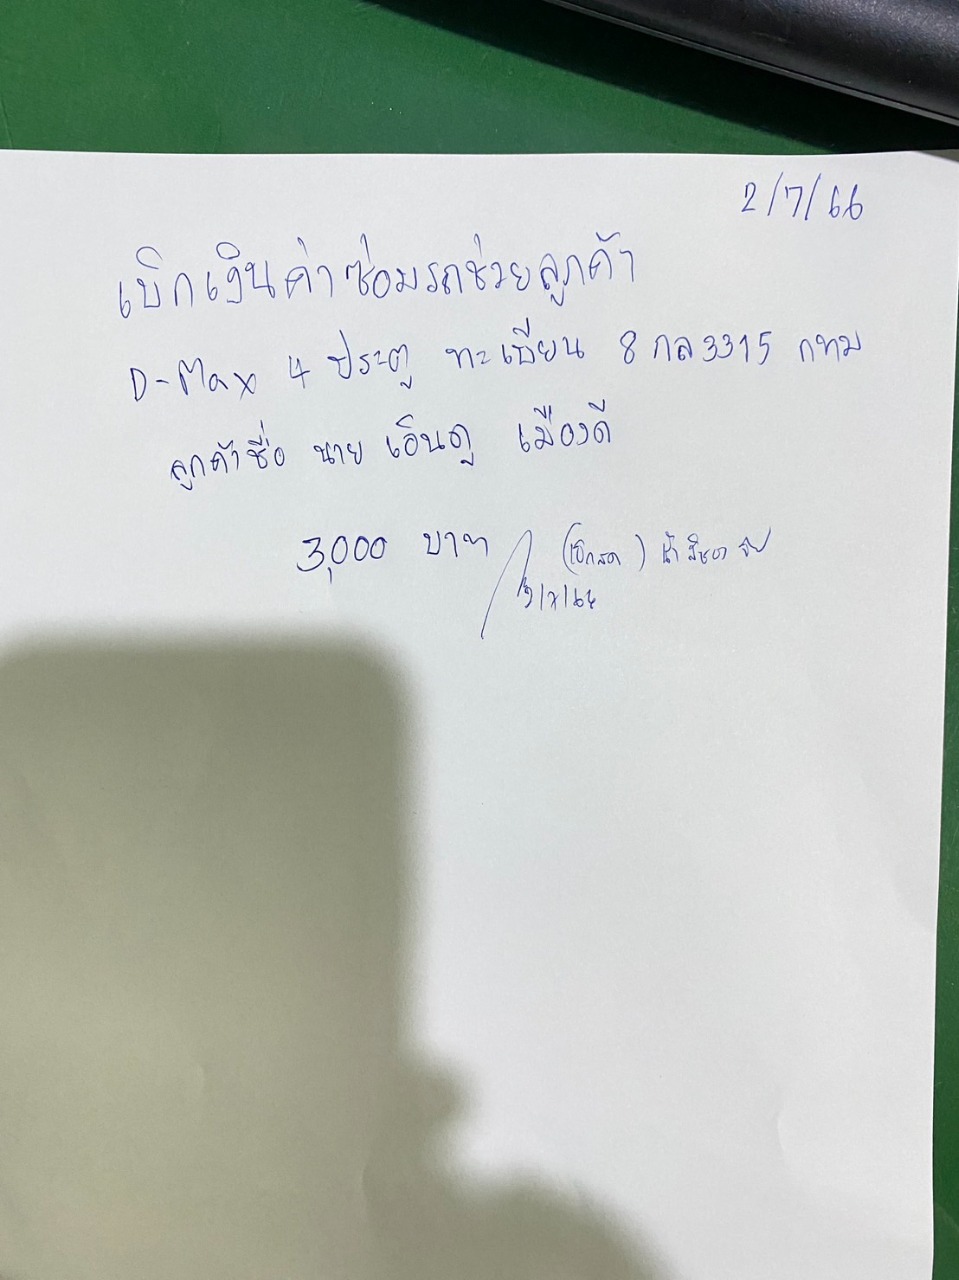 2/7/66
เบิกเงินค่าซ่อมรถช่วยลูกค้า
D-Max 4 ประตู ทะเบียน 8 กล 3315 กทม
ลูกค้าชื่อ นาย เอ็นดู เมืองดี
3,000 บาท (เบิกสด) น้ำ